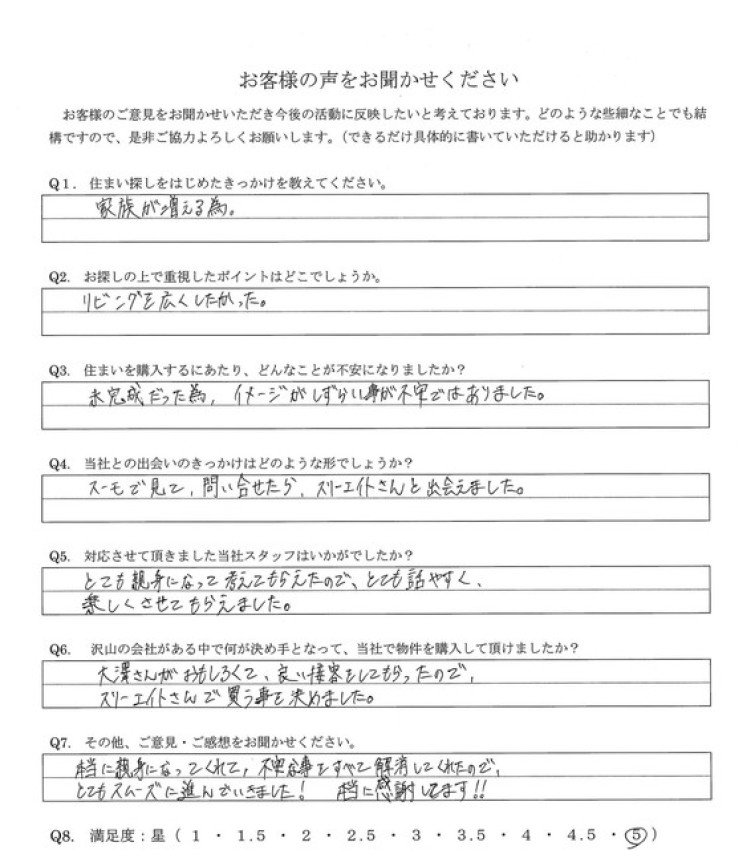 お客様の声をお聞かせください
お客様のご意見をお聞かせいただき今後の活動に反映したいと考えております。どのような些細なことでも結
構ですので、是非ご協力よろしくお願いします。（できるだけ具体的に書いていただけると助かります）
Q1. 住まい探しをはじめたきっかけを教えてください。
家族が増える為。
Q2. お探しの上で重視したポイントはどこでしょうか。
リビングを広くしたかった。
Q3. 住まいを購入するにあたり、どんなことが不安になりましたか？
未完成だった為, イメージがしずらい事が不安ではありました。
Q4. 当社との出会いのきっかけはどのような形でしょうか？
スーモで見て、問い合せたら、スリーエイトさんと出会えました。
Q5. 対応させて頂きました当社スタッフはいかがでしたか？
とても親身になって考えてもらえたので、とても話やすく、
楽しくさせてもらえました。
Q6. 沢山の会社がある中で何が決め手となって、当社で物件を購入して頂けましたか？
大澤さんがおもしろくて、良い接客をしてもらったので、
スリーエイトさんで買う事を決めました。
Q7. その他、ご意見・ご感想をお聞かせください。
本当に親身になってくれて, 不安な事をすべて解消してくれたので、
とてもスムーズに進んでいきました！ 本当に感謝してます!!
Q8. 満足度：星（ 1 ・ 1.5 ・ 2 ・ 2.5 ・ 3 ・ 3.5 ・ 4 ・ 4.5 ・ 5 ）